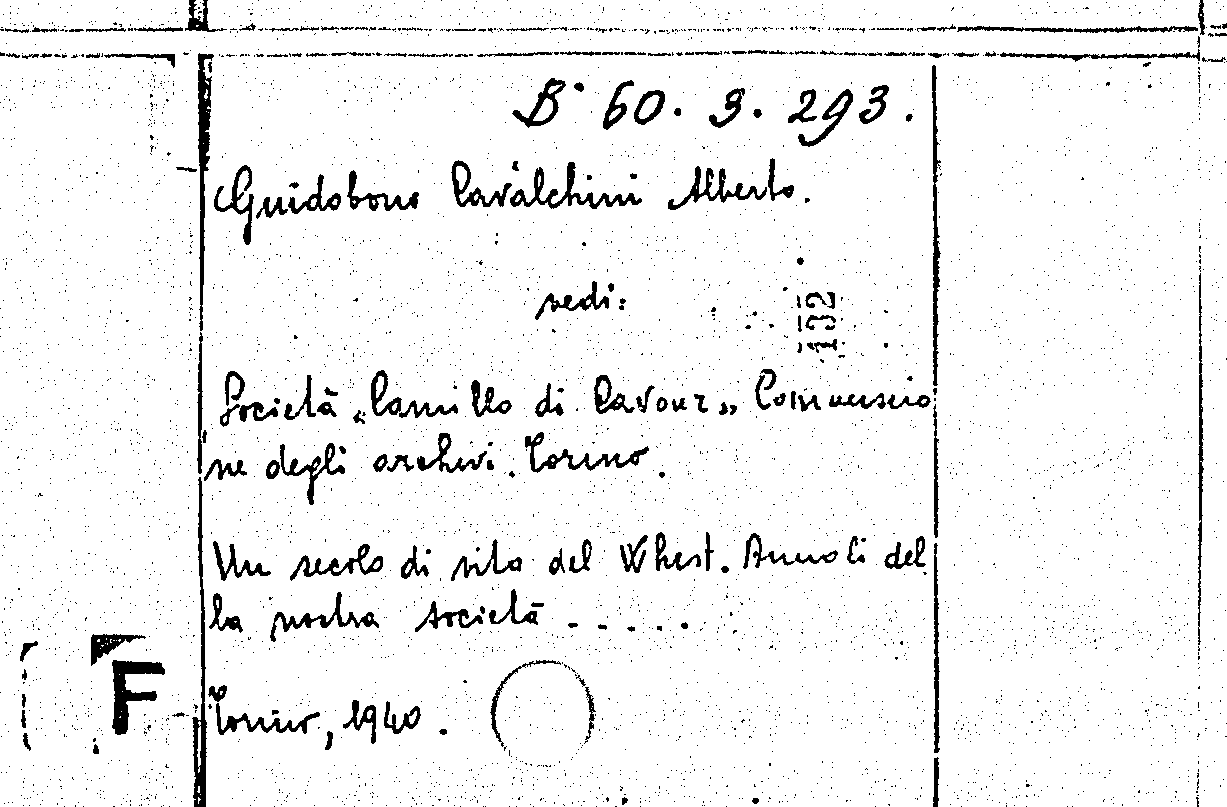 B° 60. 3. 293.
Guidobono Cavalchini Alberto.
vedi:
132
Società „Camillo di Cavour„ Commissio
ne degli archivi. Torino.
Un secolo di vita del Whist. Annali del
la nostra società . . . . .
F
Torino, 1940.